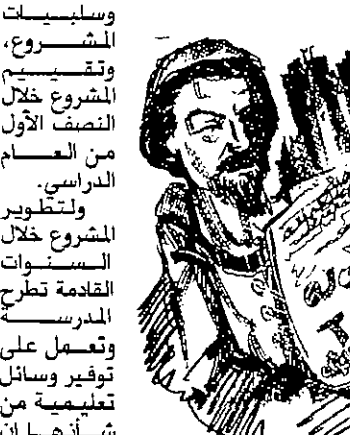 وسلبيات
المشروع،
وتقييم
المشروع خلال
النصف الأول
من العام
الدراسي.
ولتطوير
المشروع خلال
السنوات
القادمة تطرح
المدرسة
وتعمل على
توفير وسائل
تعليمية من
شأنها ان